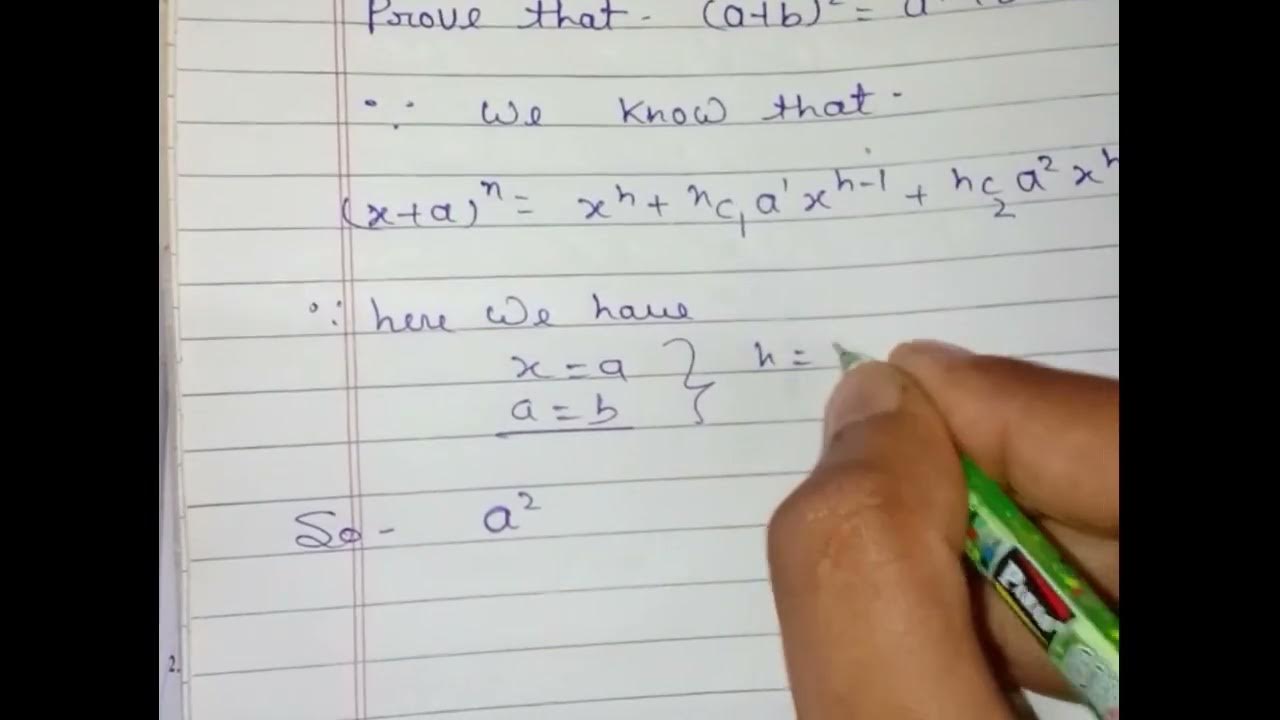 Prove that - (a+b)² = a
∵ we know that -
(x+a)ⁿ = xⁿ + ⁿC₁ a¹ xⁿ⁻¹ + ⁿC₂ a² xⁿ
∵ here we have
x = a } n =
a = b
So - a²
2.